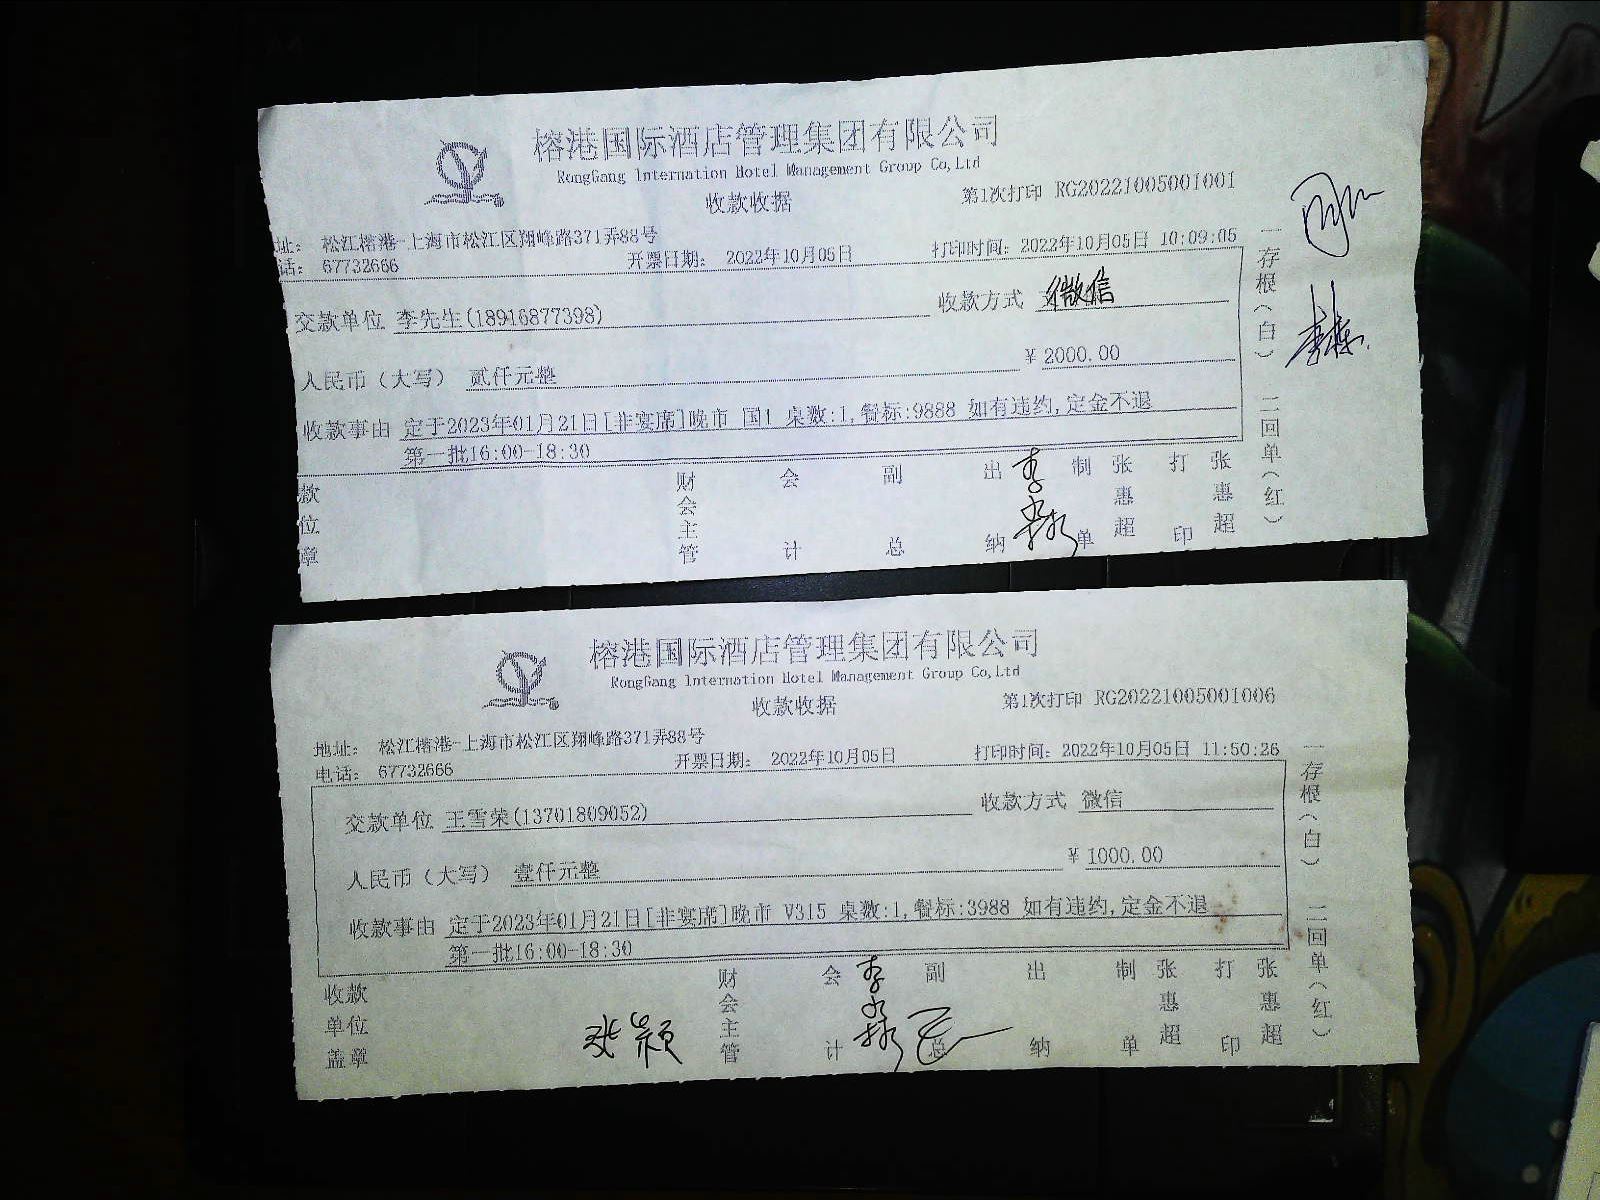 榕港国际酒店管理集团有限公司
RongGang Internation Hotel Management Group Co,Ltd
收款收据
第1次打印 RG20221005001001
址： 松江榕港-上海市松江区翔峰路371弄88号
话： 67732666
开票日期： 2022年10月05日
打印时间：2022年10月05日 10:09:05
交款单位 李先生(18916877398)
收款方式 微信
人民币（大写） 贰仟元整
￥2000.00
收款事由 定于2023年01月21日[非宴席]晚市 国1 桌数:1,餐标:9888 如有违约,定金不退
第一批16:00-18:30
款位章 财会主管 会计 副总 出纳 制单 张惠超 打印 张惠超
一存根（白） 二回单（红）
榕港国际酒店管理集团有限公司
RongGang Internation Hotel Management Group Co,Ltd
收款收据
第1次打印 RG20221005001006
地址： 松江榕港-上海市松江区翔峰路371弄88号
电话： 67732666
开票日期： 2022年10月05日
打印时间：2022年10月05日 11:50:26
交款单位 王雪荣(13701809052)
收款方式 微信
人民币（大写） 壹仟元整
￥1000.00
收款事由 定于2023年01月21日[非宴席]晚市 V315 桌数:1,餐标:3988 如有违约,定金不退
第一批16:00-18:30
收款单位盖章 张颖 财会主管 会计 副总 出纳 制单 张惠超 打印 张惠超
一存根（白） 二回单（红）